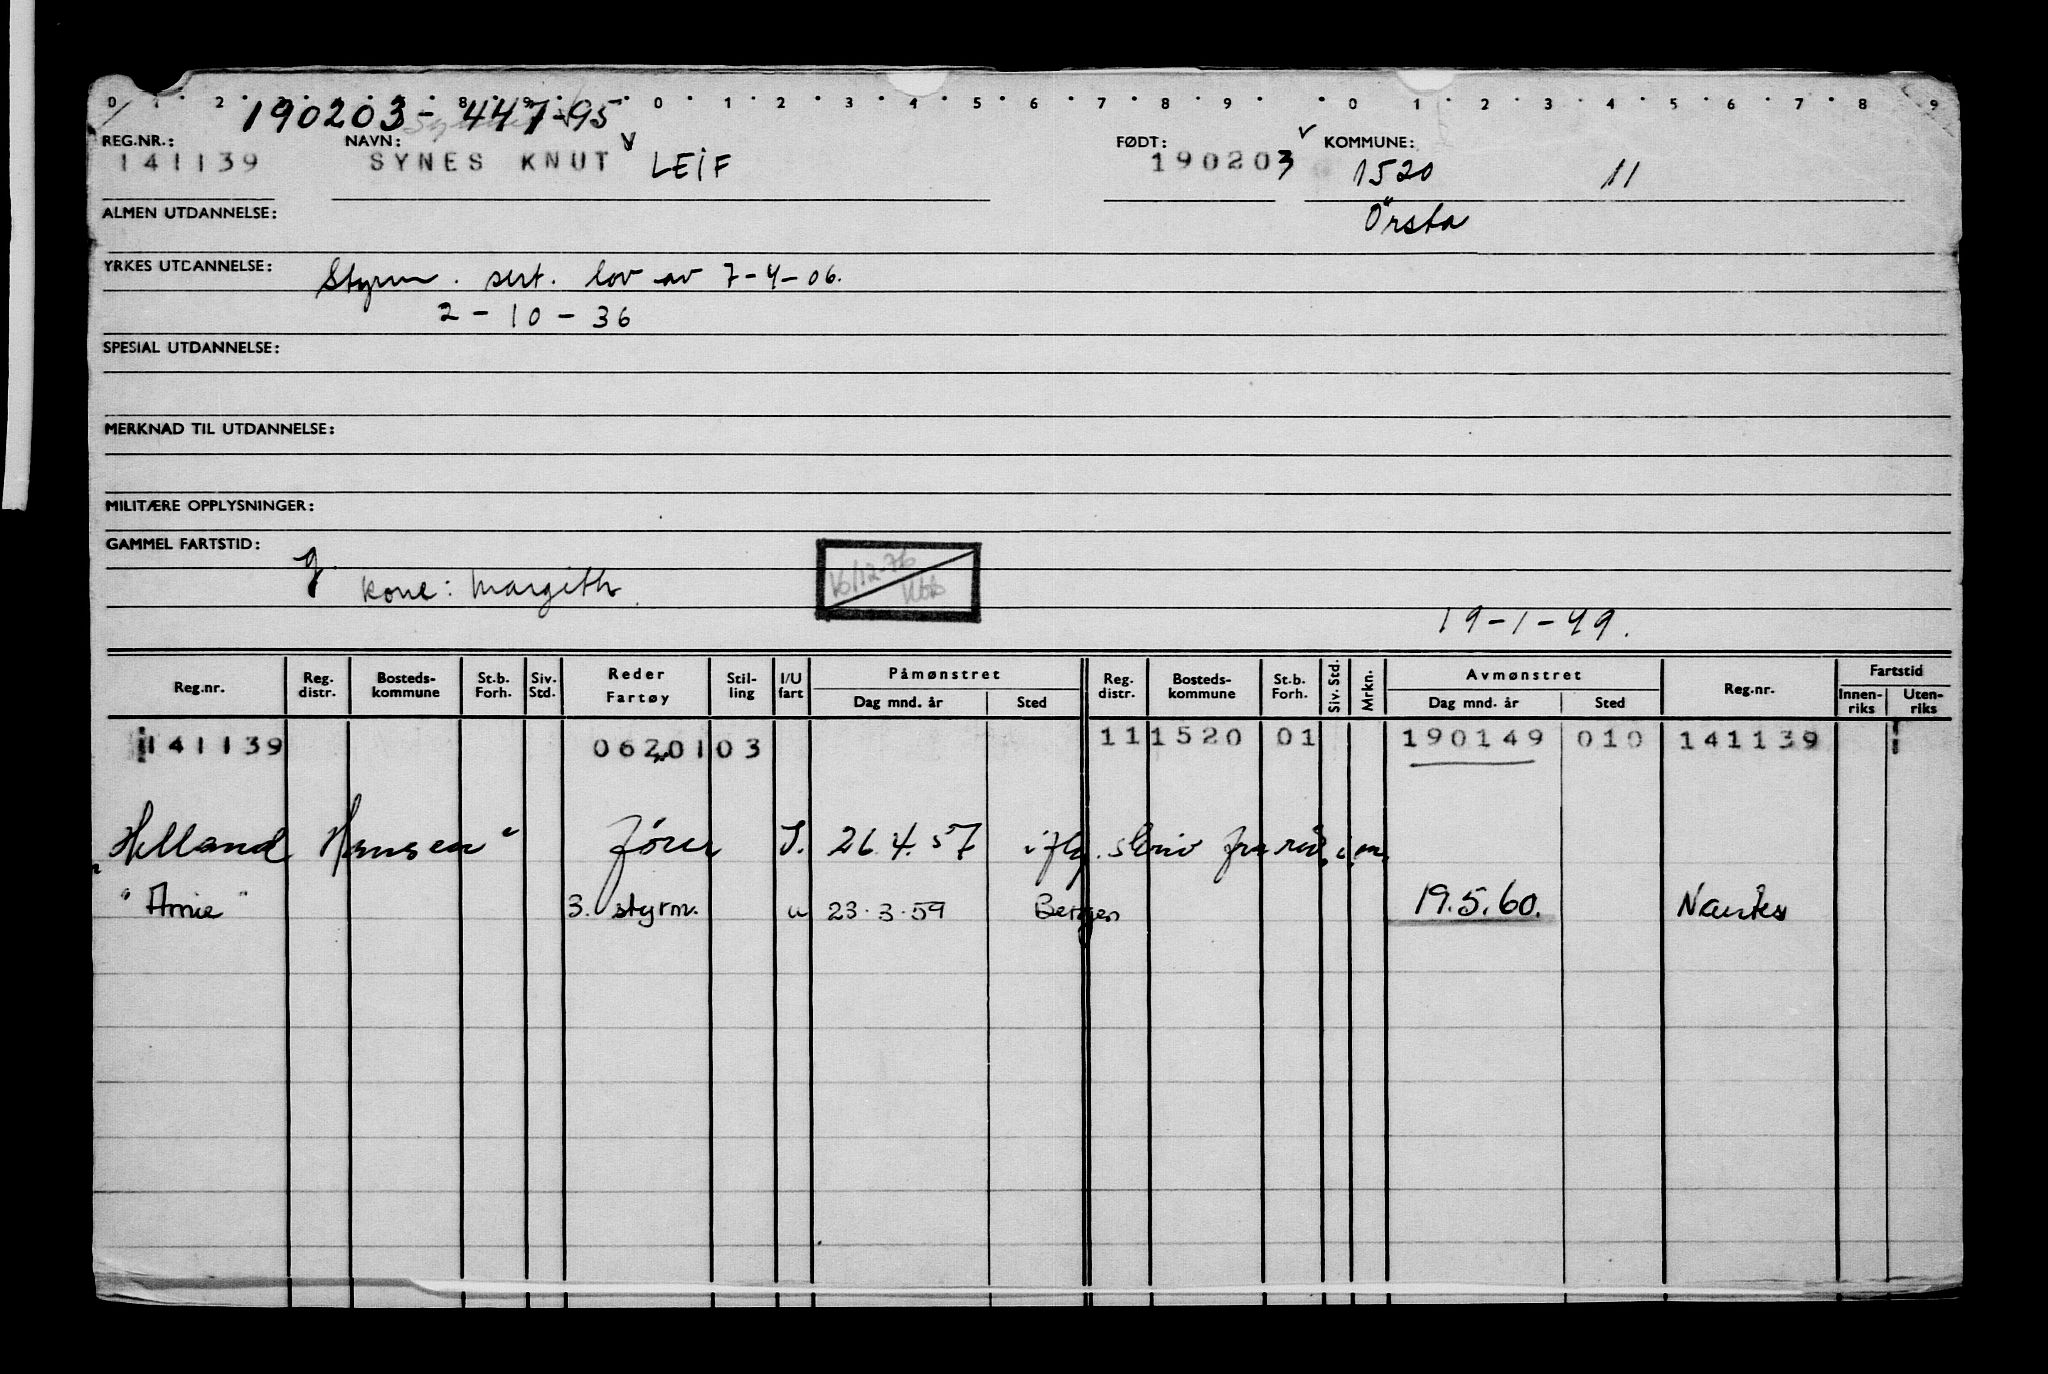 0 1 2 8 9 0 1 2 3 4 5 6 7 8 9 0 1 2 3 4 5 6 7 8 9
190203-447-95
REG.NR.: NAVN: FØDT: KOMMUNE:
141139 SYNES KNUT LEIF 190203 1520 11
ALMEN UTDANNELSE: Örsta
YRKES UTDANNELSE: Styrm. sert. lov av 7-4-06.
2-10-36
SPESIAL UTDANNELSE:
MERKNAD TIL UTDANNELSE:
MILITÆRE OPPLYSNINGER:
GAMMEL FARTSTID:
g.
kone: Margith.
16/12-76
19-1-49.
Reg.nr. Reg. distr. Bosteds-kommune St.b. Forh. Siv. Std. Reder Fartøy Stil-ling I/U fart Påmønstret Dag mnd. år Sted Reg. distr. Bosteds-kommune St.b. Forh. Siv. Std. Mrkn. Avmønstret Dag mnd. år Sted Reg.nr. Fartstid Innen-riks Uten-riks
141139 0620103 11 1520 01 190149 010 141139
"Helland Hansen" fører I. 26.4.57 iflg. skriv fra
"Arnie" 3. styrm. u 23.3.59 Bergen 19.5.60. Nantes